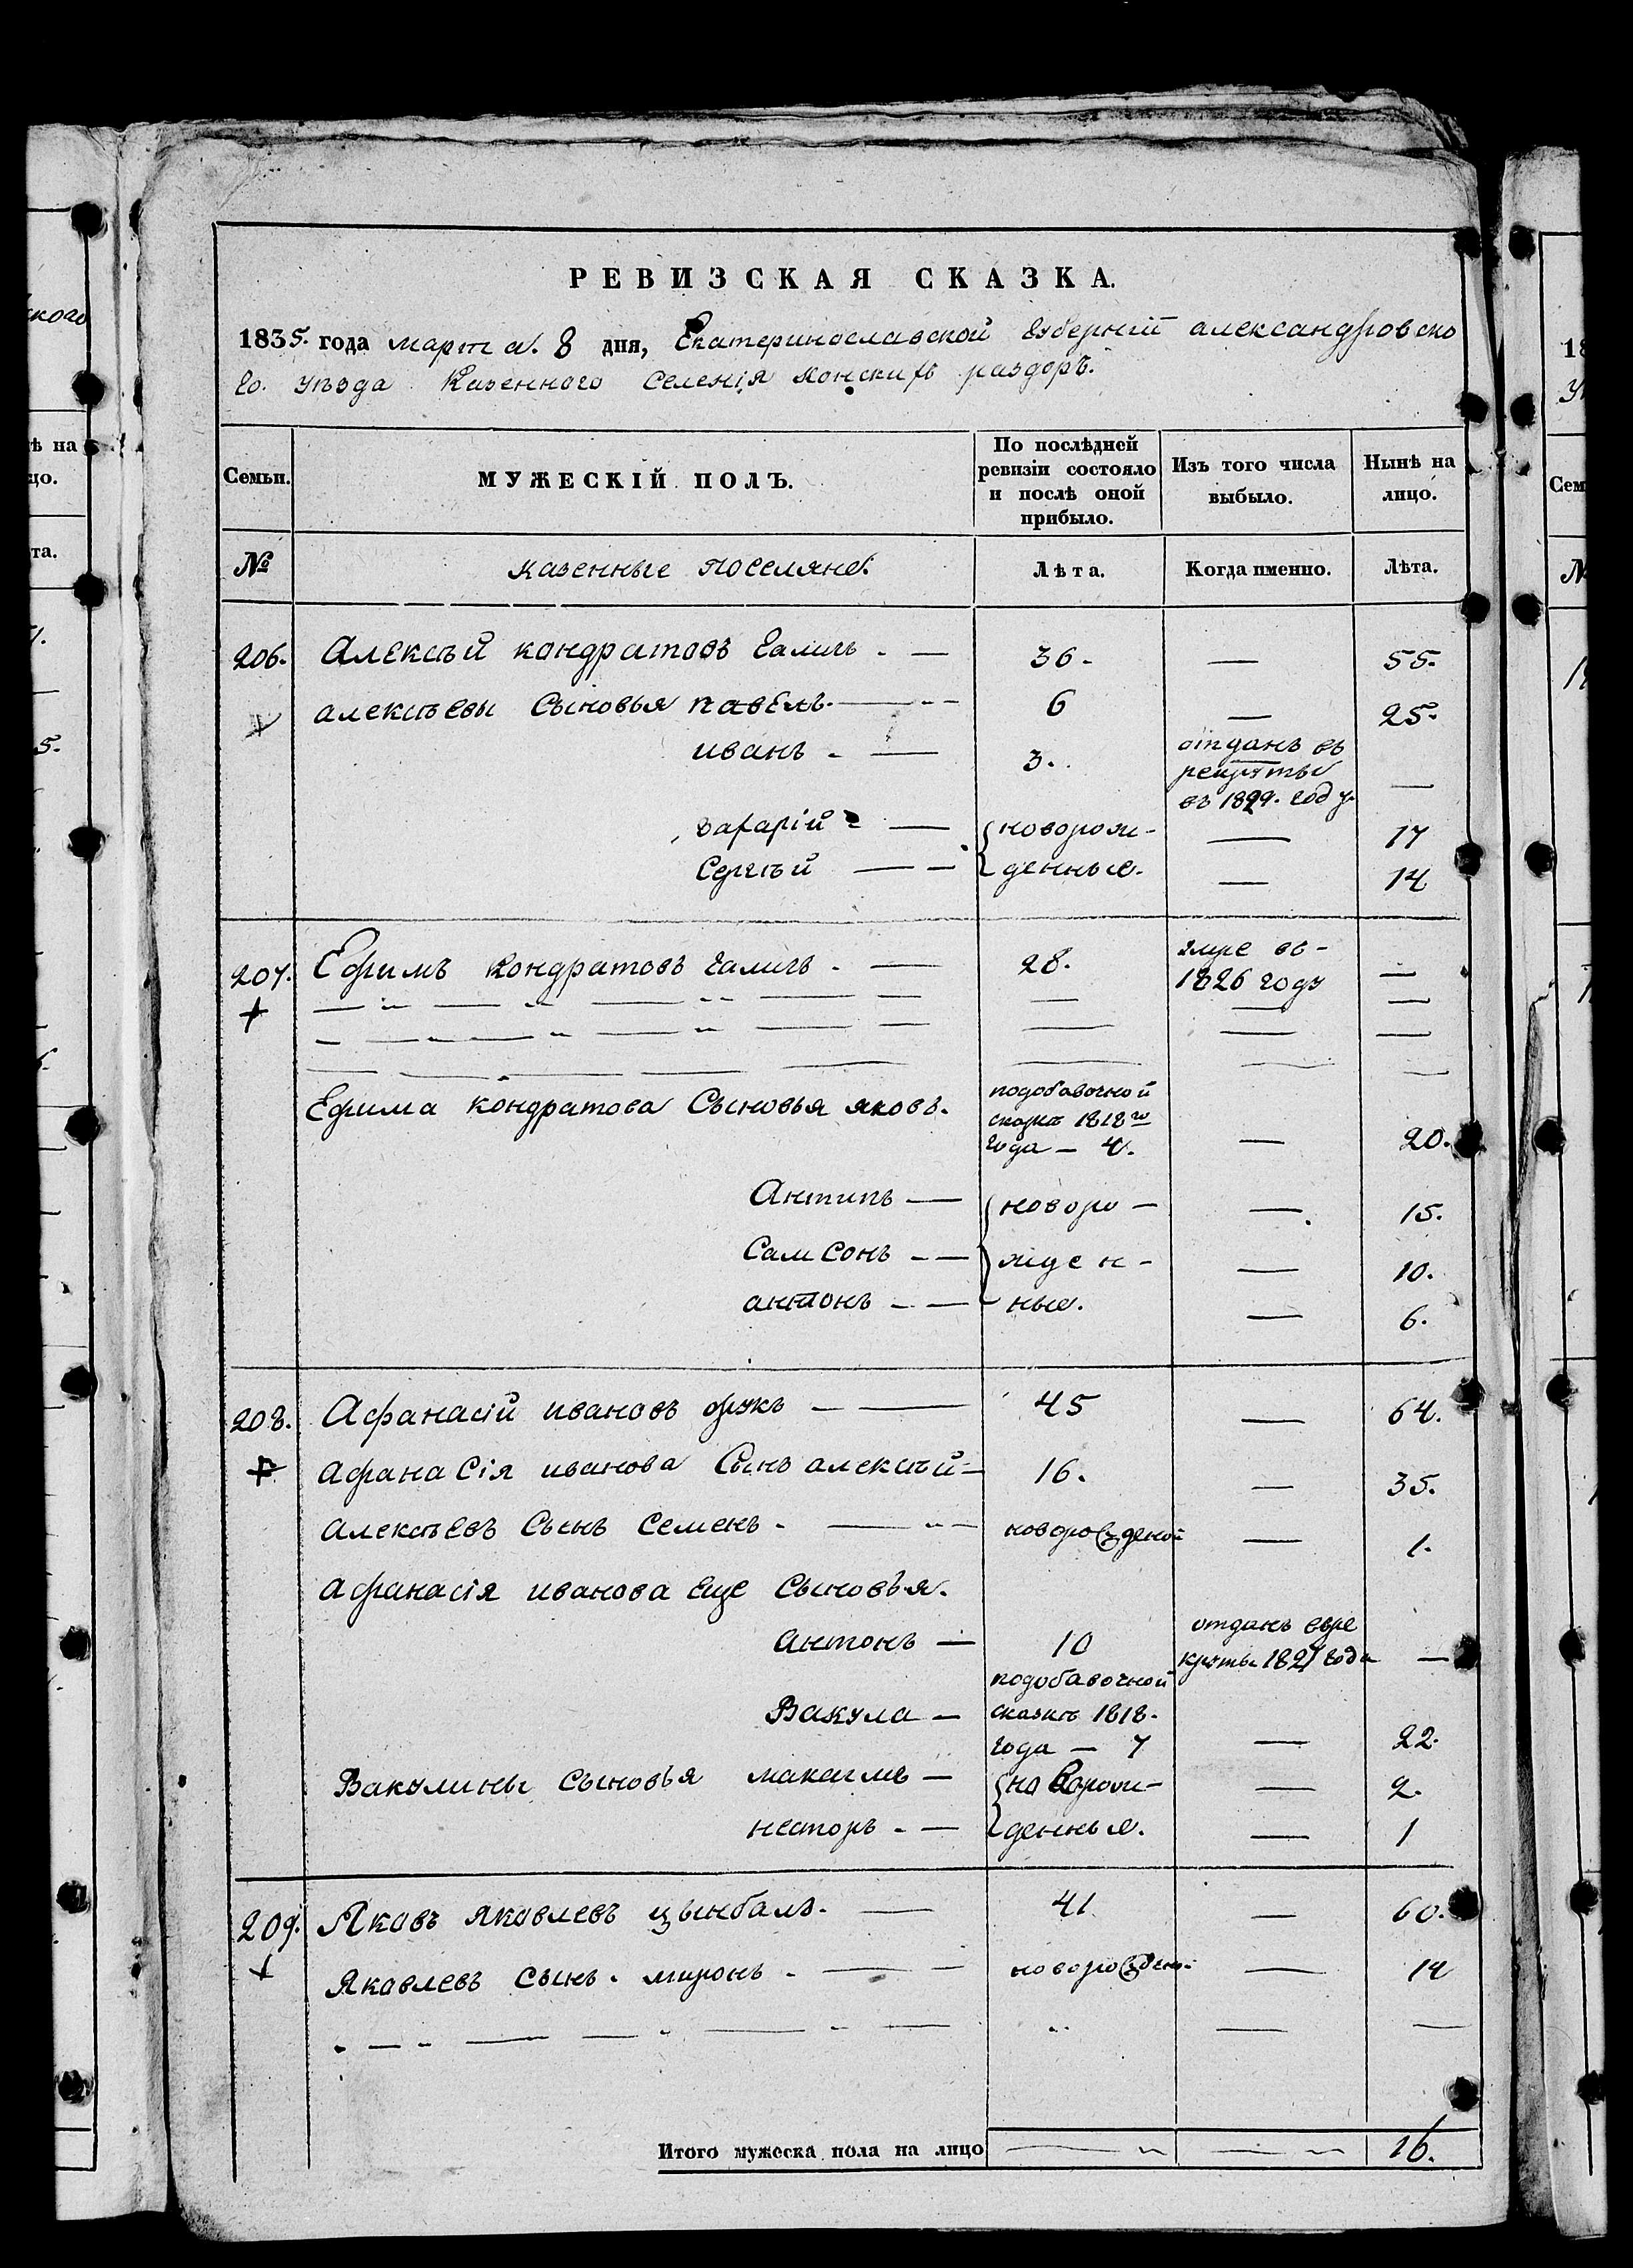 РЕВИЗСКАЯ СКАЗКА.
1835. года марта. 8 дня, Екатеринославской Губерніи александровско
го. уѣзда Казенного Селенія Конскихъ раздоръ.
Семьи. МУЖЕСКІЙ ПОЛЪ. По послѣдней ревизіи состояло и послѣ оной прибыло. Изъ того числа выбыло. Нынѣ на лицо.
№ казенные поселяне. Лѣта. Когда именно. Лѣта.
206. Алексѣй кондратовъ Галичъ - — 36. — 55.
алексѣевы Сыновья павелъ. — 6 — 25.
иванъ - — 3. отданъ въ рекруты въ 1829. году —
Захарій - — новорож- — 17
Сергѣй — денные. — 14
207. Ефимъ Кондратовъ Галичъ - — 28. умре въ - 1826 году —
Ефима кондратова Сыновья яковъ. подобавочной сказкѣ 1818го года — 4. — 20.
Антипъ — новоро - — 15.
Самсонъ - — жден - — 10.
антонъ - — ные. — 6.
208. Афанасій ивановъ фукъ — 45 — 64.
афанасія иванова Сынъ алексѣй - 16. — 35.
алексѣевъ Сынъ Семенъ - — новорожденой — 1.
афанасія иванова еще Сыновья.
антонъ — 10 отданъ врекруты 1821 года —
Вакула — подобавочной сказкѣ 1818. года — 7 — 22.
Вакулины Сыновья максимъ — новорож- — 2.
несторъ - — денные. — 1
209. Яковъ яковлевъ цынбалъ. — 41 — 60.
Яковлевъ сынъ. миронъ - — новорожден. — 14
Итого мужеска пола на лицо — — 16.
кого
ѣ на
цо.
та.
5.
18
Сем